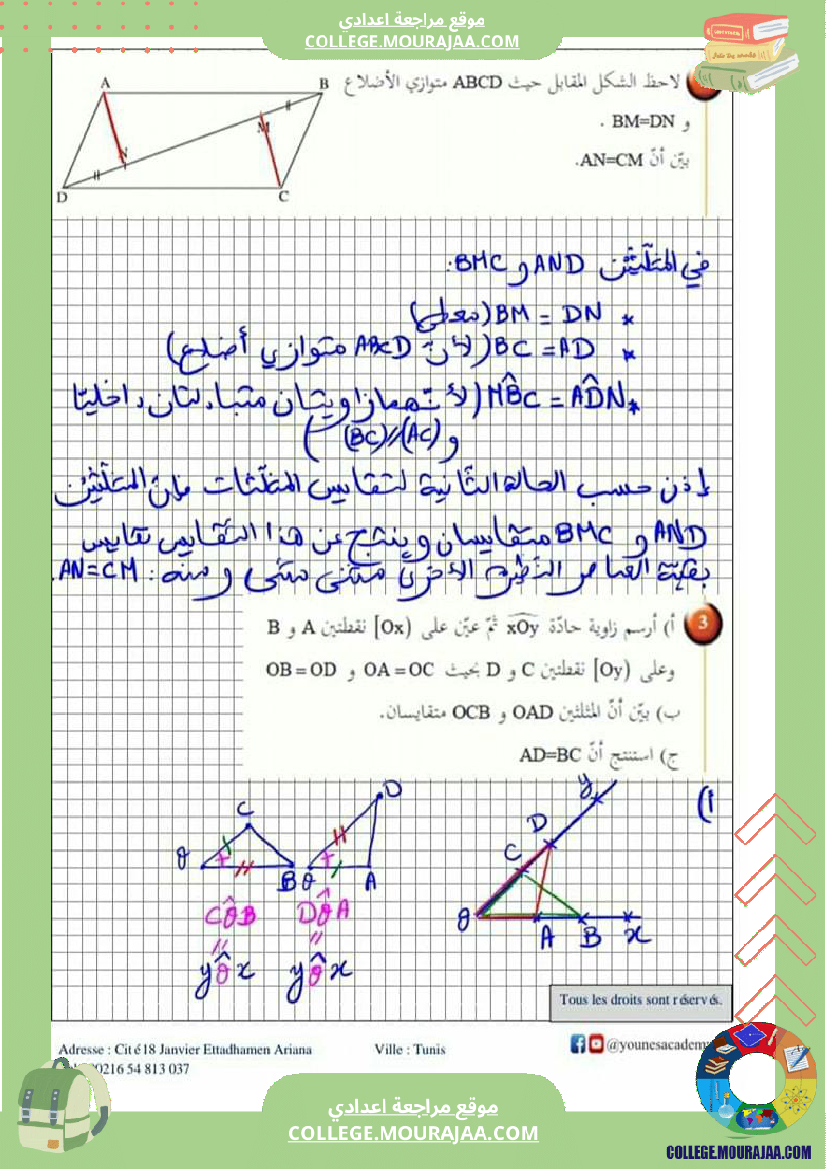 موقع مراجعة اعدادي
COLLEGE.MOURAJAA.COM
لاحظ الشكل المقابل حيث ABCD متوازي الأضلاع
و BM=DN .
بيّن أنّ AN=CM.
A
B
M
N
D
C
في المثلّثين AND و BMC:
* BM = DN (معطى)
* BC = AD (لأنّ ABCD متوازي أضلاع)
* MB̂C = AD̂N (لأنّهما زاويتان متبادلتان داخليا
و (AC)//(BC))
إذن حسب الحالة الثانية لتقايس المثلّثات فإنّ المثلّثين
AND و BMC متقايسان وينتج عن هذا التّقايس تقايس
بقيّة العناصر النّظيرة الأخرى مثنى مثنى ومنه : AN=CM.
3
أ) أرسم زاوية حادّة xOy ثمّ عيّن على [Ox) نقطتين A و B
وعلى [Oy) نقطتين C و D بحيث OA=OC و OB=OD
ب) بيّن أنّ المثلثين OAD و OCB متقايسان.
ج) استنتج أنّ AD=BC
أ)
y
D
C
O
A
B
x
D
O
A
C
O
B
CÔB
DÔA
=
=
yÔx
yÔx
Tous les droits sont réservés.
Adresse : Cité 18 Janvier Ettadhamen Ariana
Ville : Tunis
@younesacadem
0216 54 813 037
موقع مراجعة اعدادي
COLLEGE.MOURAJAA.COM
COLLEGE.MOURAJAA.COM